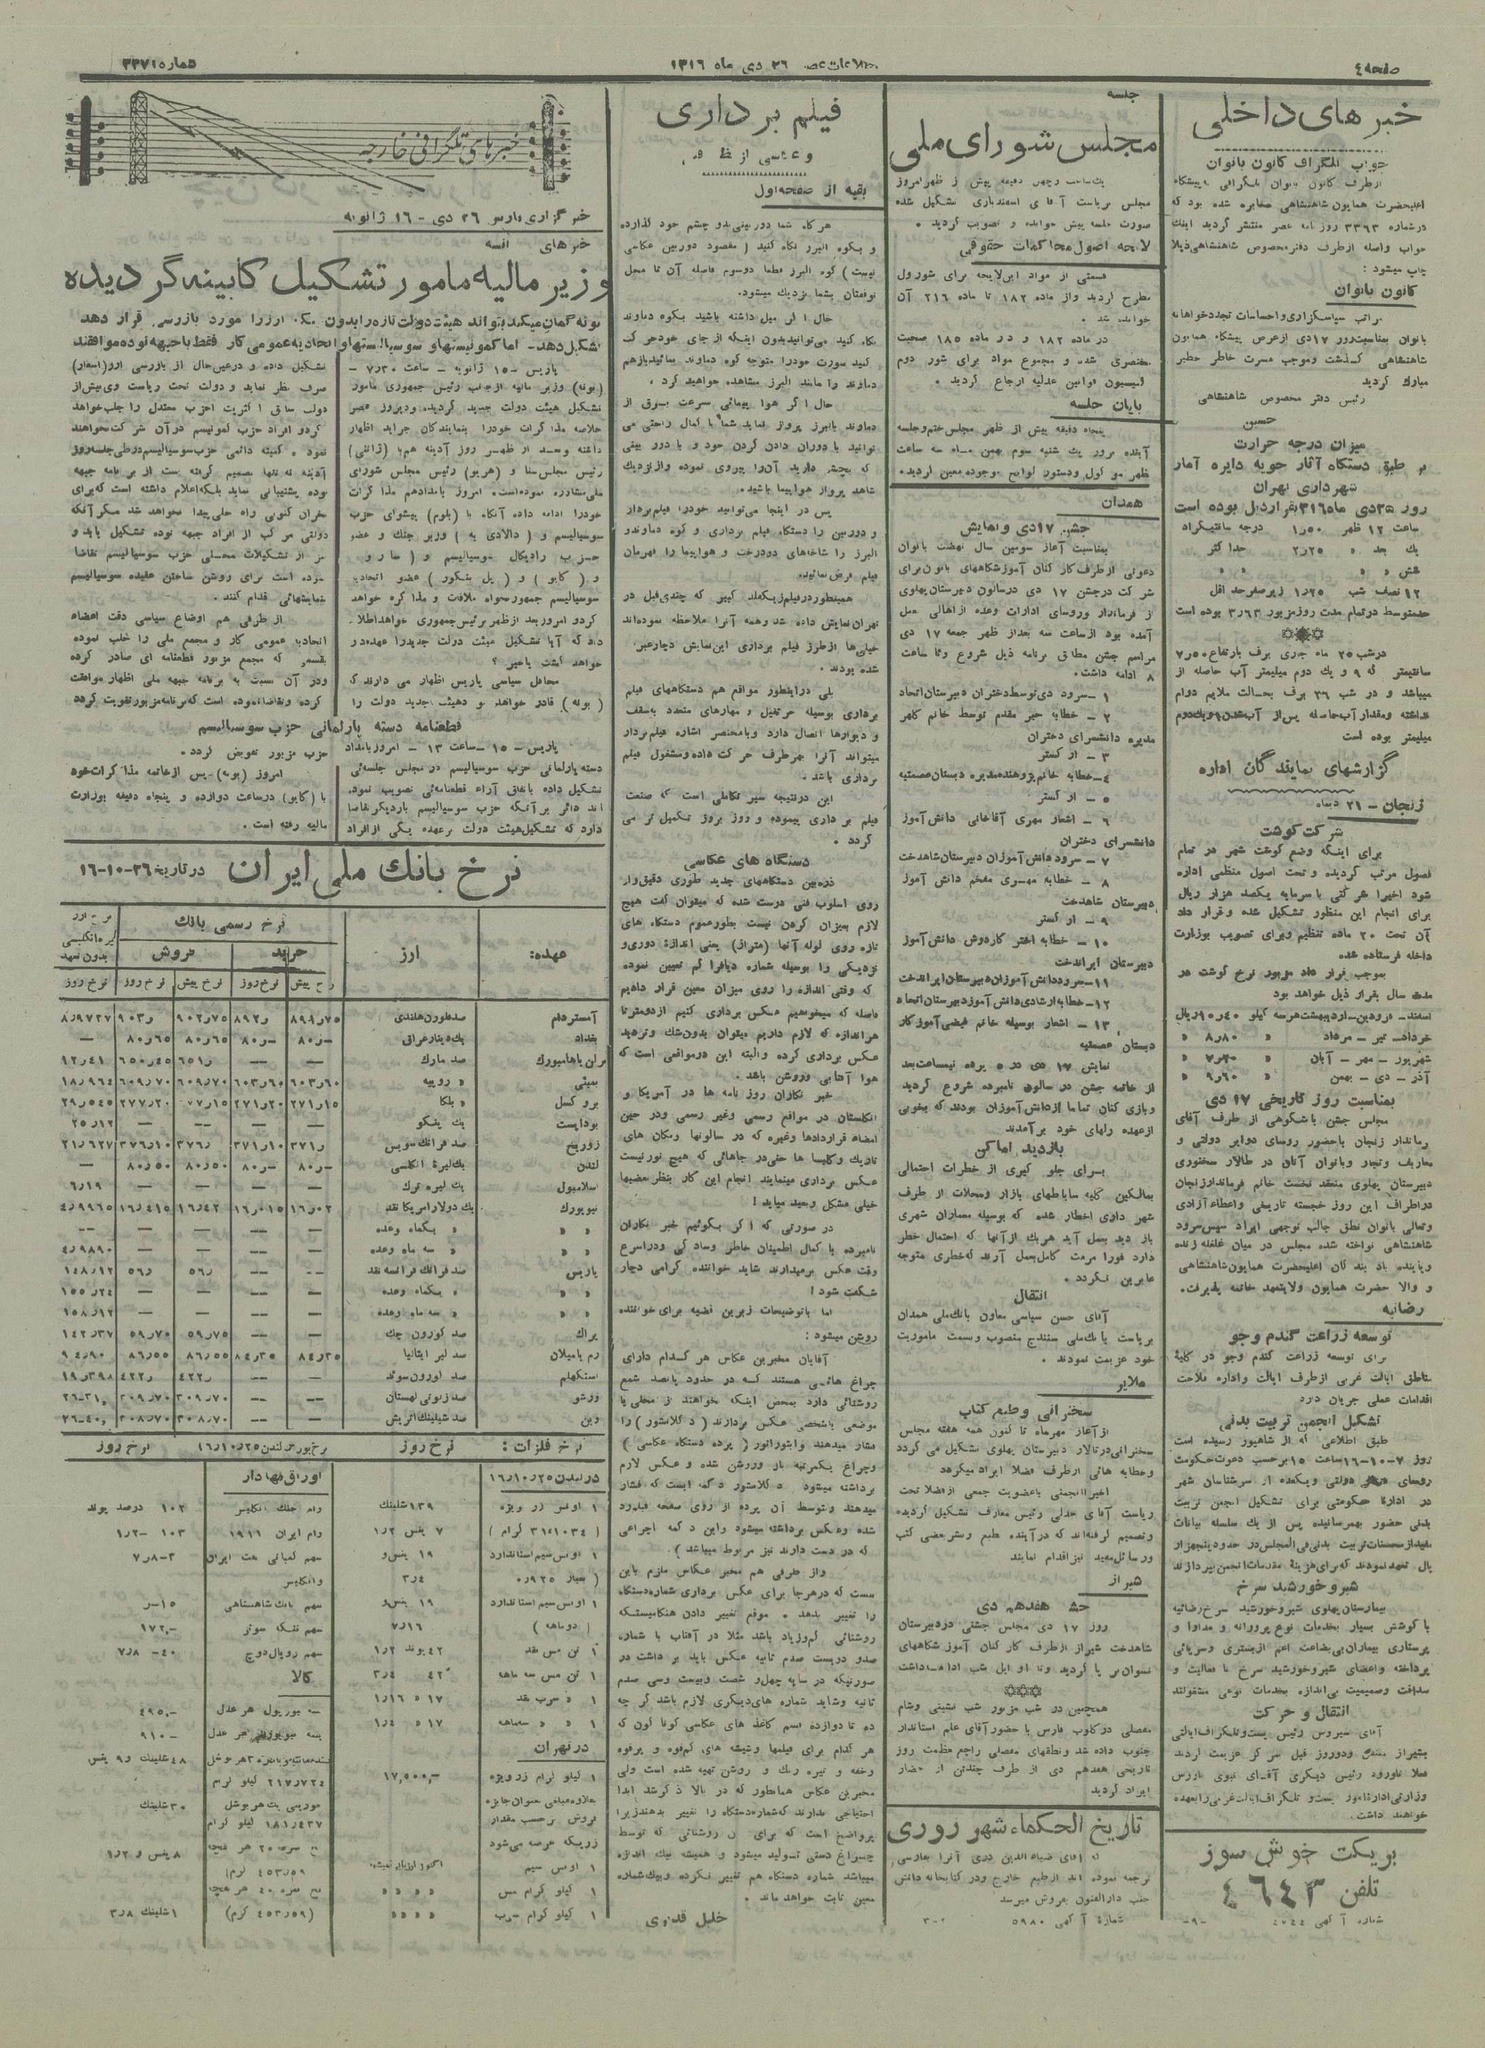 صفحه ٤
۲٦ دی ماه ۱۳۱٦
شماره ۳۳۷۱
خبر های داخلی
جواب تلگراف کانون بانوان
ازطرف کانون بانوان تلگرافی به پیشگاه
اعلیحضرت همایون شاهنشاهی مخابره شده بود که
درشماره ۳۳٦۳ روزنامه عصر منتشر گردید اینک
جواب واصله ازطرف دفتر مخصوص شاهنشاهی ذیلا
چاپ میشود :
کانون بانوان
مراتب سپاسگزاری واحساسات تجدد خواهانه
بانوان بمناسبت روز ۱۷ دی ازعرض پیشگاه همایون
شاهنشاهی گذشت وموجب مسرت خاطر خطیر
مبارک گردید
رئیس دفتر مخصوص شاهنشاهی
حسین
میزان درجه حرارت
بر طبق دستگاه آثار جویه دایره آمار
شهرداری تهران
روز ۲۵ دی ماه ۳۱٦ بقرار ذیل بوده است
ساعت ۱۲ ظهر ۱٫۵۰ درجه سانتیگراد
یک بعد » ۲٫۲۵ حداکثر
شش » » »
۱۲ نصف شب ۱٫۲۵ زیر صفر حد اقل
حدمتوسط درتمام مدت روز مزبور ۳٫٦۳ بوده است
درشب ۲۵ ماه جاری برف بارتفاع ۷٫۵۰
سانتیمتر که ۹ و یک دوم میلیمتر آب حاصله از
میباشد و در شب ۲٦ برف بحالت ملایم دوام
نداشته ومقدار آب حاصله پس از آب شدن ۱ ویک دوم
میلیمتر بوده است
گزارشهای نمایندگان اداره
زنجان – ۲۱ دیماه
شرکت گوشت
برای اینکه وضع گوشت شهر در تمام
فصول مرتب گردیده و تحت اصول منظمی اداره
شود اخیرا شرکتی با سرمایه یکصد هزار ریال
برای انجام این منظور تشکیل شده و قرار داد
آن تحت ۲۰ ماده تنظیم و برای تصویب بوزارت
داخله فرستاده شده
بموجب قرار داد مزبور نرخ گوشت در
مدت سال بقرار ذیل خواهد بود
اسفند – فروردین – اردیبهشت هر سه کیلو ۱۰٫٤۰ ریال
خرداد – تیر – مرداد » ۸٫۸۰ »
شهریور – مهر – آبان » ۷٫۲۰ »
آذر – دی – بهمن » ۹٫٦۰ »
بمناسبت روز تاریخی ۱۷ دی
مجلس جشن باشکوهی از طرف آقای
فرماندار زنجان باحضور روسای دوایر دولتی و
معاریف وتجار وبانوان آنان در طالار سخنوری
دبیرستان پهلوی منعقد نخست خانم فرماندار زنجان
دراطراف این روز خجسته تاریخی واعطاء آزادی
وتعالی بانوان نطق جالب توجهی ایراد سپس سرود
شاهنشاهی نواخته شده مجلس در میان غلغله زنده
وپاینده باد بندگان اعلیحضرت همایون شاهنشاهی
و والا حضرت همایون ولایتعهد خاتمه پذیرفت.
رضائیه
توسعه زراعت گندم وجو
برای توسعه زراعت گندم وجو در کلیه
مناطق ایالت غربی ازطرف ایالت واداره فلاحت
اقدامات عملی جریان دارد
تشکیل انجمن تربیت بدنی
طبق اطلاعی که از شاهپور رسیده است
روز ۷-۱۰-۱٦ ساعت ۱۵ برحسب دعوت حکومت
روسای دوائر دولتی ویکعده از سرشناسان شهر
در اداره حکومتی برای تشکیل انجمن تربیت
بدنی حضور بهم رسانیده پس از یک سلسله بیانات
مفید از محسنات تربیت بدنی فی المجلس در حدود پنجهزار
ریال تعهد نمودند که برای هزینه مقدمات انجمن بپردازند
شیروخورشید سرخ
بیمارستان پهلوی شیروخورشید سرخ رضائیه
با کوشش بسیار بخدمات نوع پرورانه و مداوا و
پرستاری بیماران بی بضاعت اعم از بستری وسرپائی
پرداخته واعضای شیروخورشید سرخ با فعالیت و
صداقت وصمیمیت بی اندازه بخدمات نوعی مشغولند
انتقال و حرکت
آقای سیروس رئیس پست وتلگراف ایالتی
بشیراز منتقل ودوروز قبل بمرکز عزیمت کردند
فعلا تاورود رئیس دیگری آقای نبوی بازرس
وزارتی اداره امور پست و تلگراف ایالت غربی را بعهده
خواهند داشت.
بریکت خوش سوز
تلفن ٤٦٤۳
شماره آ گهی
-۹-
جلسه
مجلس شورای ملی
یک ساعت وچهل دقیقه پیش از ظهر امروز
مجلس بریاست آقای اسفندیاری تشکیل شده
صورت جلسه پیش خوانده و تصویب گردید.
لایحه اصول محاکمات حقوقی
قسمتی از مواد این لایحه برای شور اول
مطرح گردید واز ماده ۱۸۲ تا ماده ۲۱٦ آن
خوانده شد .
در ماده ۱۸۲ و در ماده ۱۸۵ صحبت
مختصری شد و مجموع مواد برای شور دوم
کمیسیون قوانین عدلیه ارجاع گردید .
پایان جلسه
پنجاه دقیقه پیش از ظهر مجلس ختم وجلسه
آینده بروز یک شنبه سوم بهمن ماه سه ساعت
بظهر موکول ودستور لوایح موجوده معین گردید.
همدان
جشن ۱۷ دی ونمایش
بمناسبت آغاز سومین سال نهضت بانوان
دعوتی ازطرف کارکنان آموزشگاههای بانوان برای
شرکت درجشن ۱۷ دی درسالون دبیرستان پهلوی
از فرماندار وروسای ادارات وعده ازاهالی بعمل
آمده بود ازساعت سه بعداز ظهر جمعه ۱۷ دی
مراسم جشن مطابق برنامه ذیل شروع وتا ساعت
۸ ادامه داشت.
۱ – سرود دی توسط دختران دبیرستان اتحاد
۲ – خطابه خیر مقدم توسط خانم کلهر
مدیره دانشسرای دختران
۳ – ارکستر
٤ – خطابه خانم پژوهنده مدیره دبستان عصمتیه
۵ – ارکستر
٦ – اشعار مهری آقاخانی دانش آموز
دانشسرای دختران
۷ – سرود دانش آموزان دبیرستان شاهدخت
۸ – خطابه مهدی مفخم دانش آموز
دبیرستان شاهدخت
۹ – ارکستر
۱۰ – خطابه اختر کاردوش دانش آموز
دبیرستان ایراندخت
۱۱ – سرود دانش آموزان دبیرستان ایراندخت
۱۲ – خطابه ارشادی دانش آموز دبیرستان اتحاد
۱۳ – اشعار بوسیله خانم فیضی آموزگار
دبستان عصمتیه
نمایش ۱۷ دی در ۵ پرده نیمساعت بعد
از خاتمه جشن در سالون نامبرده شروع گردید
وبازی کنان تماما ازدانش آموزان بودند که بخوبی
ازعهده رلهای خود برآمدند
بازدید اماکن
برای جلو گیری از خطرات احتمالی
بمالکین کلیه ساباطهای بازار ومحلات از طرف
شهر داری اخطار شده که بوسیله معماران شهری
باز دید بعمل آید هریک ازآنها که احتمال خطر
دارد فورا مرمت کامل بعمل آرند که خطری متوجه
عابرین نگردد .
انتقال
آقای حسن سیاسی معاون بانک ملی همدان
بریاست بانک ملی سنندج منصوب وبسمت ماموریت
خود عزیمت نمودند .
ملایر
سخنرانی وطبع کتاب
ازآغاز مهرماه تا کنون همه هفته مجلس
سخنرانی درتالار دبیرستان پهلوی تشکیل می گردد
وخطابه هائی ازطرف فضلا ایراد میگردد
اخیرا انجمنی باعضویت جمعی ازفضلا تحت
ریاست آقای عدلی رئیس معارف تشکیل گردیده
وتصمیم گرفته اند که درآینده بطبع ونشر بعضی کتب
ورسائل مفید نیز اقدام نمایند
شیراز
جشن هفدهم دی
روز ۱۷ دی مجلس جشنی دردبیرستان
شاهدخت شیراز ازطرف کارکنان آموزشگاههای
نسوان بر پا گردید وتا اوایل شب ادامه داشت
همچنین در شب مزبور شب نشینی وشام
مفصلی درکلوب فارس با حضور آقای علم استاندار
جنوب داده شد ونطقهای مفصلی راجع بعظمت روز
تاریخی هفدهم دی از طرف چندتن از حضار
ایراد گردید
تاریخ الحکماء شهر زوری
که آقای ضیاءالدین دری آنرا بفارسی
ترجمه نموده اند ازطبع خارج ودر کتابخانه دانش
جنب دارالفنون بفروش میرسد
شماره آ گهی ۵۹۸۰
۳-۲
فیلم برداری
و عکاسی از
بقیه از صفحه اول
هرگاه شما دوربینی بدو چشم خود گذارده
و بکوه البرز نگاه کنید ( مقصود دوربین عکاسی
نیست ) کوه البرز قطعا دوسوم فاصله آن تا محل
توقفتان بشما نزدیک میشود.
حال اگر میل داشته باشید بکوه دماوند
نگاه کنید می توانید بدون اینکه ازجای خود حرکت
کنید صورت خودرا متوجه کوه دماوند بنمائید بازهم
دماوند را مانند البرز مشاهده خواهید کرد .
حال اگر هوا پیمائی بسرعت برق از
دماوند بالبرز پرواز نماید شما با کمال راحتی می
توانید با دوران دادن گردن خود و با دور بینی
که بچشم دارید آن را پیروی نموده واز نزدیک
شاهد پرواز هواپیما باشید.
پس در اینجا می توانید خودرا فیلم بردار
و دوربین را دستگاه فیلم برداری و کوه دماوند و
البرز را شاخهای دودرخت و هواپیما را قهرمان
فیلم فرض نمائید.
همینطور درفیلم زیگفلد کبیر که چندی قبل در
تهران نمایش داده شد وهمه آنرا ملاحظه نموده اند
خیلی ها ازطرز فیلم برداری این نمایش دچار تعجب
شده بودند .
بلی دراینطور مواقع هم دستگاههای فیلم
برداری بوسیله جرثقیل و مهارهای متعدد بسقف
و دیوارها اتصال دارد وبامختصر اشاره فیلم بردار
میتواند آنرا بهر طرف حرکت داده ومشغول فیلم
برداری باشد .
این درنتیجه سیر تکاملی است که صنعت
فیلم برداری پیموده و روز بروز تکمیل تر می
گردد .
دستگاه های عکاسی
ذره بین دستگاههای جدید طوری دقیق وار
روی اسلوب فنی درست شده که میتوان گفت هیچ
لازم بمیزان کردن نیست بطور عموم دستگاه های
تازه روی لوله آنها (متراژ) یعنی اندازه دوری و
نزدیکی را بوسیله شماره دیافراگم تعیین نموده
که وقتی اندازه را روی میزان معین قرار دادیم
فاصله که میخواهیم عکس برداری کنیم ازدومتر تا
هراندازه که لازم داریم میتوان بدون شک وتردید
عکس برداری کرده والبته این درمواقعی است که
هوا آفتابی وروشن باشد .
خبر نگاران روز نامه ها در آمریکا و
انگلستان در مواقع رسمی وغیر رسمی ودر حین
امضاء قراردادها وغیره که در سالونها ومکان های
تاریک وکلیسا ها حتی در جاهائی که هیچ نور نیست
عکس برداری مینمایند انجام این کار بنظر بعضیها
خیلی مشکل وبعید میاید !
در صورتی که اگر بگوئیم خبر نگاران
نامبرده با کمال اطمینان خاطر وسادگی ودراسرع
وقت عکس برمیدارند شاید خواننده گرامی دچار
شگفت شود !
اما باتوضیحات زیرین قضیه برای خواننده
روشن میشود :
آقایان مخبرین عکاس هر کدام دارای
چراغ هائی هستند که در حدود پانصد شمع
روشنائی دارد بمحض اینکه خواهند از محلی یا
موضعی یا شخصی عکس بردارند ( د کلانشور ) را
فشار میدهند وابتوراتور ( پرده دستگاه عکاسی )
وچراغ یکمرتبه باز وروشن شده و عکس لازم
برداشته میشود
واز طرفی هم مخبر عکاس ملزم باین
نیست که درهرجا برای عکس برداری شماره دستگاه
را تغییر بدهد . موقع تغییر دادن هنگامیستکه
روشنائی کم وزیاد باشد مثلا در آفتاب با شماره
صدو دویست صدم ثانیه عکس باید بر داشت در
صورتیکه در سایه چهل و شصت وبیست وسی صدم
ثانیه وشاید شماره های دیگری لازم باشد گر چه
ده تا دوازده قسم کاغذ های عکاسی گوناگون که
هر کدام برای فیلمها وشیشه های کم قوه و پرقوه
وخفه و تیره رنگ و روشن تهیه شده است ولی
مخبرین عکاس همانطور که در بالا ذکر شد ابدا
احتیاجی ندارند که شماره دستگاه را تغییر بدهند زیرا
پرواضح است که برای آن روشنائی که توسط
چراغ دستی تولید میشود و همیشه یک اندازه
میباشد شماره دستگاه هم تغییر نکرده وبیک شماره
معین ثابت خواهد ماند .
خلیل قدیری
خبرهای تلگرافی خارجه
خبر گزاری پارس ۲٦ دی – ۱٦ ژانویه
خبر های
وزیر مالیه مامور تشکیل کابینه گردیده
تشکیل دهد – اما کمونیستها و سوسیالیستها و اتحادیه عمومی کار فقط با جبهه توده موافقند
پاریس – ۱۵ ژانویه – ساعت ۷٫۳۰ –
(بونه) وزیر مالیه ازجانب رئیس جمهوری مامور
تشکیل هیئت دولت جدید گردید. ودیروز عصر
خلاصه مذاکرات خودرا بنمایندگان جراید اظهار
داشته وبعد از ظهر روز آدینه هم؛ (ژانتی)
رئیس مجلس سنا و (هریو) رئیس مجلس شورای
ملی مشاوره نموده است. امروز بامداد هم مذاکرات
خودرا ادامه داده آنگاه با (بلوم) پیشوای حزب
سوسیالیسم و ( دالادی یه ) وزیر جنگ و عضو
حزب رادیکال سوسیالیسم و ( سارو )
و ( کابو ) و ( پل بنکور ) عضو اتحادیه
سوسیالیسم جمهور یخواه ملاقات و مذاکره خواهد
کرد و امروز بعد ازظهر برئیس جمهوری خواهد اطلاع
داد که آیا تشکیل هیئت دولت جدیدرا عهده دار
خواهد گشت یا خیر ؟
محافل سیاسی پاریس اظهار می دارند که
( بونه ) قادر خواهد بود هیئت جدید دولت را
تشکیل داده و درعین حال از بازرسی ارز (اسعار)
صرف نظر نماید و دولت تحت ریاست وی بیش از
دولت سابق اکثریت احزاب معتدل را جلب خواهد
کرد و افراد حزب کمونیسم در آن شرکت نخواهند
نمود . کمیته دائمی حزب سوسیالیسم درطی جلسه روز
آدینه نه تنها تصمیم گرفته است از برنامه جبهه
توده پشتیبانی نماید بلکه اعلام داشته است که برای
بحران کنونی راه حلی پیدا نخواهد شد مگر آنکه
دولتی مرکب از افراد جبهه توده تشکیل یابد و
نیز از تشکیلات محلی حزب سوسیالیسم تقاضا
کرده است برای روشن ساختن عقیده سوسیالیسم
نمایشهائی اقدام کنند .
از طرفی هم اوضاع سیاسی دقت اعضاء
اتحادیه عمومی کار و مجمع ملی را جلب نموده
بقسمی که مجمع مزبور قطعنامه ای صادر کرده
ودر آن نسبت به برنامه جبهه ملی اظهار موافقت
کرده وتقاضا نموده است که برنامه مزبور تقویت گردد
قطعنامه دسته پارلمانی حزب سوسیالیسم
پاریس – ۱۵ – ساعت ۱۳ – امروز بامداد
دسته پارلمانی حزب سوسیالیسم در مجلس جلسه ئی
تشکیل داده باتفاق آراء قطعنامه ئی تصویب نمود.
اند دائر بر آنکه حزب سوسیالیسم باردیگر تقاضا
دارد که تشکیل هیئت دولت برعهده یکی ازافراد
حزب مزبور تفویض گردد .
امروز (بونه) پس ازخاتمه مذاکرات خود
با (کابو) درساعت دوازده و پنجاه دقیقه بوزارت
مالیه رفته است .
نرخ بانک ملی ایران درتاریخ ۲٦-۱۰-۱٦
عهده: ارز نرخ رسمی بانک
خرید فروش
نرخ پیش نرخ روز نرخ پیش نرخ روز نرخ روز
آمستردام صدفلورن هلندی ۸۹۹٫۷۵ ۸۹۲٫ ۹۰۲٫۷۵ ۹۰۳٫ ۸٫۹۷۲۷
بغداد یک دینار عراقی ۸۰٫– ۸۰٫– ۸۰٫٦۵ ۸۰٫٦۵ —
برلن یا هامبورک صد مارک — — ٦۵۱٫ ٦۵۰٫٤۵ ۱۲٫٤۱
بمبئی » روپیه ٦۰۳٫٦۰ ٦۰۳٫٦۰ ٦۰۹٫۷۰ ٦۰۹٫۷۰ ۱۸٫۹٦٤
بروکسل » بلگا ۲۷۱٫۱۵ ۲۷۱٫۲۰ ۲۷۷٫۱۵ ۲۷۷٫۲۰ ۲۹٫۵٤۵
بوداپست یک پنگو — — — — ۲۵٫۱۲
زوریخ صد فرانک سویس ۳۷۱٫ ۳۷۱٫۱۰ ۳۷٦٫ ۳۷٦٫۱۰ ۲۱٫٦۲۷
لندن یک لیره انگلیسی ۸۰٫– ۸۰٫– ۸۰٫۵۰ ۸۰٫۵۰ —
اسلامبول یک لیره ترک — — — — ٦٫۱۹
نیویورک یک دولار امریکا نقد ۱٦٫۰۲ ۱٦٫۰۱۵ ۱٦٫٤۲ ۱٦٫٤۱۵ ٤٫۹۹٦۵
» » » یکماه وعده — — — — —
» » » سه ماه وعده — — — — ٤٫۹۸۹۰
پاریس صد فرانک فرانسه نقد — — ۵٦٫ ۵٦٫ ۱٤۸٫۱۲
» » » یکماه وعده — — — — ۱۵۵٫۲٤
» » » سه ماه وعده — — — — ۱۵۸٫۱۲
پراک صد کورون چک — — ۵۹٫۷۵ ۵۹٫۷۰ ۱٤۲٫۳۷
رم یا میلان صد لیر ایتالیا ۸٤٫۳۵ ۸٤٫۳۵ ۸٦٫۵۵ ۸٦٫۵۵ ۹٤٫۹۰
استکهلم صد کورون سوئد — — ٤۲۲٫ ٤۲۲٫ ۱۹٫۳۹۸
ورشو صد زلوتی لهستان — — ۳۰۹٫۷۰ ۳۰۹٫۷۰ ۲٦-۳۱
وین صد شیلینک اتریش — — ۳۰۸٫۷۰ ۳۰۸٫۷۰ ۲٦-٤۰
نرخ فلزات : نرخ روز
درلندن ۱٦٫۱۰٫۲۵
۱ اونس زر ویژه ۱۳۹ شلینک
( ۳۱٫۱۰۳٤ گرام ) ۷ پنس ۱٫۲
۱ اونس سیم استاندارد ۱۹ پنس و
( عیار ۰٫۹۲۵ ) ۳٫٤
۱ اونس سیم استاندارد ۱۹ پنس و
( دوماهه ) ۷٫۱٦
۱ تن مس نقد ٤۲ پوند ۱٫۲
۱ تن مس سه ماهه ٤۲ ۳٫٤
۱ » سرب نقد ۱۷ » ۱٫۱٦
۱ » » سه ماهه ۱۷ » ۱٫٤
درتهران
۱ کیلو گرام زر ویژه ۱۷,۵۰۰,–
علاوه مبلغی بعنوان جایزه
فروش برحسب مقدار
زریکه عرضه می شود
۱ اونس سیم
۱ کیلو گرام مس » » » »
۱ کیلو گرام سرب » » » »
نرخ بورس لندن ۱٦٫۱۰٫۲۵ نرخ روز
اوراق بهادار
وام جنگ انگلیس ۱۰۲ درصد پوند
وام ایران ۱۹۱۱ ۱۰۳ –۱٫۲
سهم کمپانی نفت ایران ۳–۷٫۸
وانگلیس
سهم بانک شاهنشاهی
سهم ترعه سوئز ۱۷۲,–
سهم رویال دوچ ٤۰–۷٫۸
کالا
پنبه لیورپول هر عدل ٤۹۵,–
پنبه نیویورک هر عدل ۹۱۰–
٤۸ شلینک و ۹ پنس
۲۱۷٫۷۲٤ کیلو گرم
۳۰ شلینک
۱۸۱٫٤۳۷ کیلو گرام
۸ پنس و ۱٫۲
(٤۵۳٫۵۹ گرم)
(٤۵۳٫۵۹ گرم) ۱ شلینک ۳٫۸